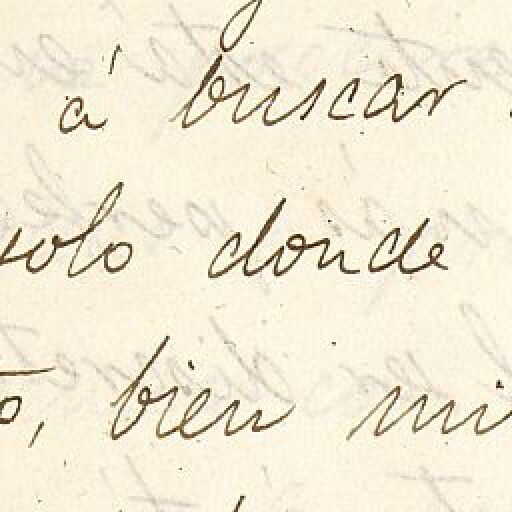 á buscar
solo donde
bien mi